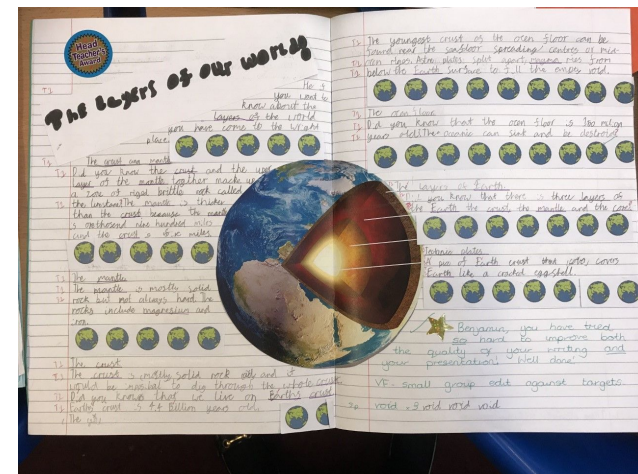 Head
Teacher's
Award
The layers of our world
you want to
know about the
layers of the world
you have come to the wright
place
The crust and mantle
Did you know the crust and the
layer of the mantle together make
a zone of rigid brittle rock called
The mantle is thicker
than the crust because the
is onethosend nine hundred miles
and the crust is miles
The mantle
The mantle is mostly solid
rock but not always hard. The
rocks include magnesium and
iron.
The crust
The crust is mostly solid rock and it
would be to dig through the whole
Did you know that we live on Earths crust
Earths crust is 4.4 Billion years old.
The
The youngest crust of the ocen floor can be
found near the seafloor spreading centres of mid-
ocen As plates split apart, magma rises from
below the Earth surface to fill the empty void.
The ocen
Did you know that the ocen floor is million
years old. The oceanic can sink and be
The layers of Earth.
you know that there is three layers of
the Earth the crust the mantle and the
plates
A pice of Earth crust that covers
Earth like a cracked eggshell.
Benjamin, you have tried
so hard to improve both
the quality of your writing and
your presentation. Well done!
VF - small group edit against targets.
void → void void void